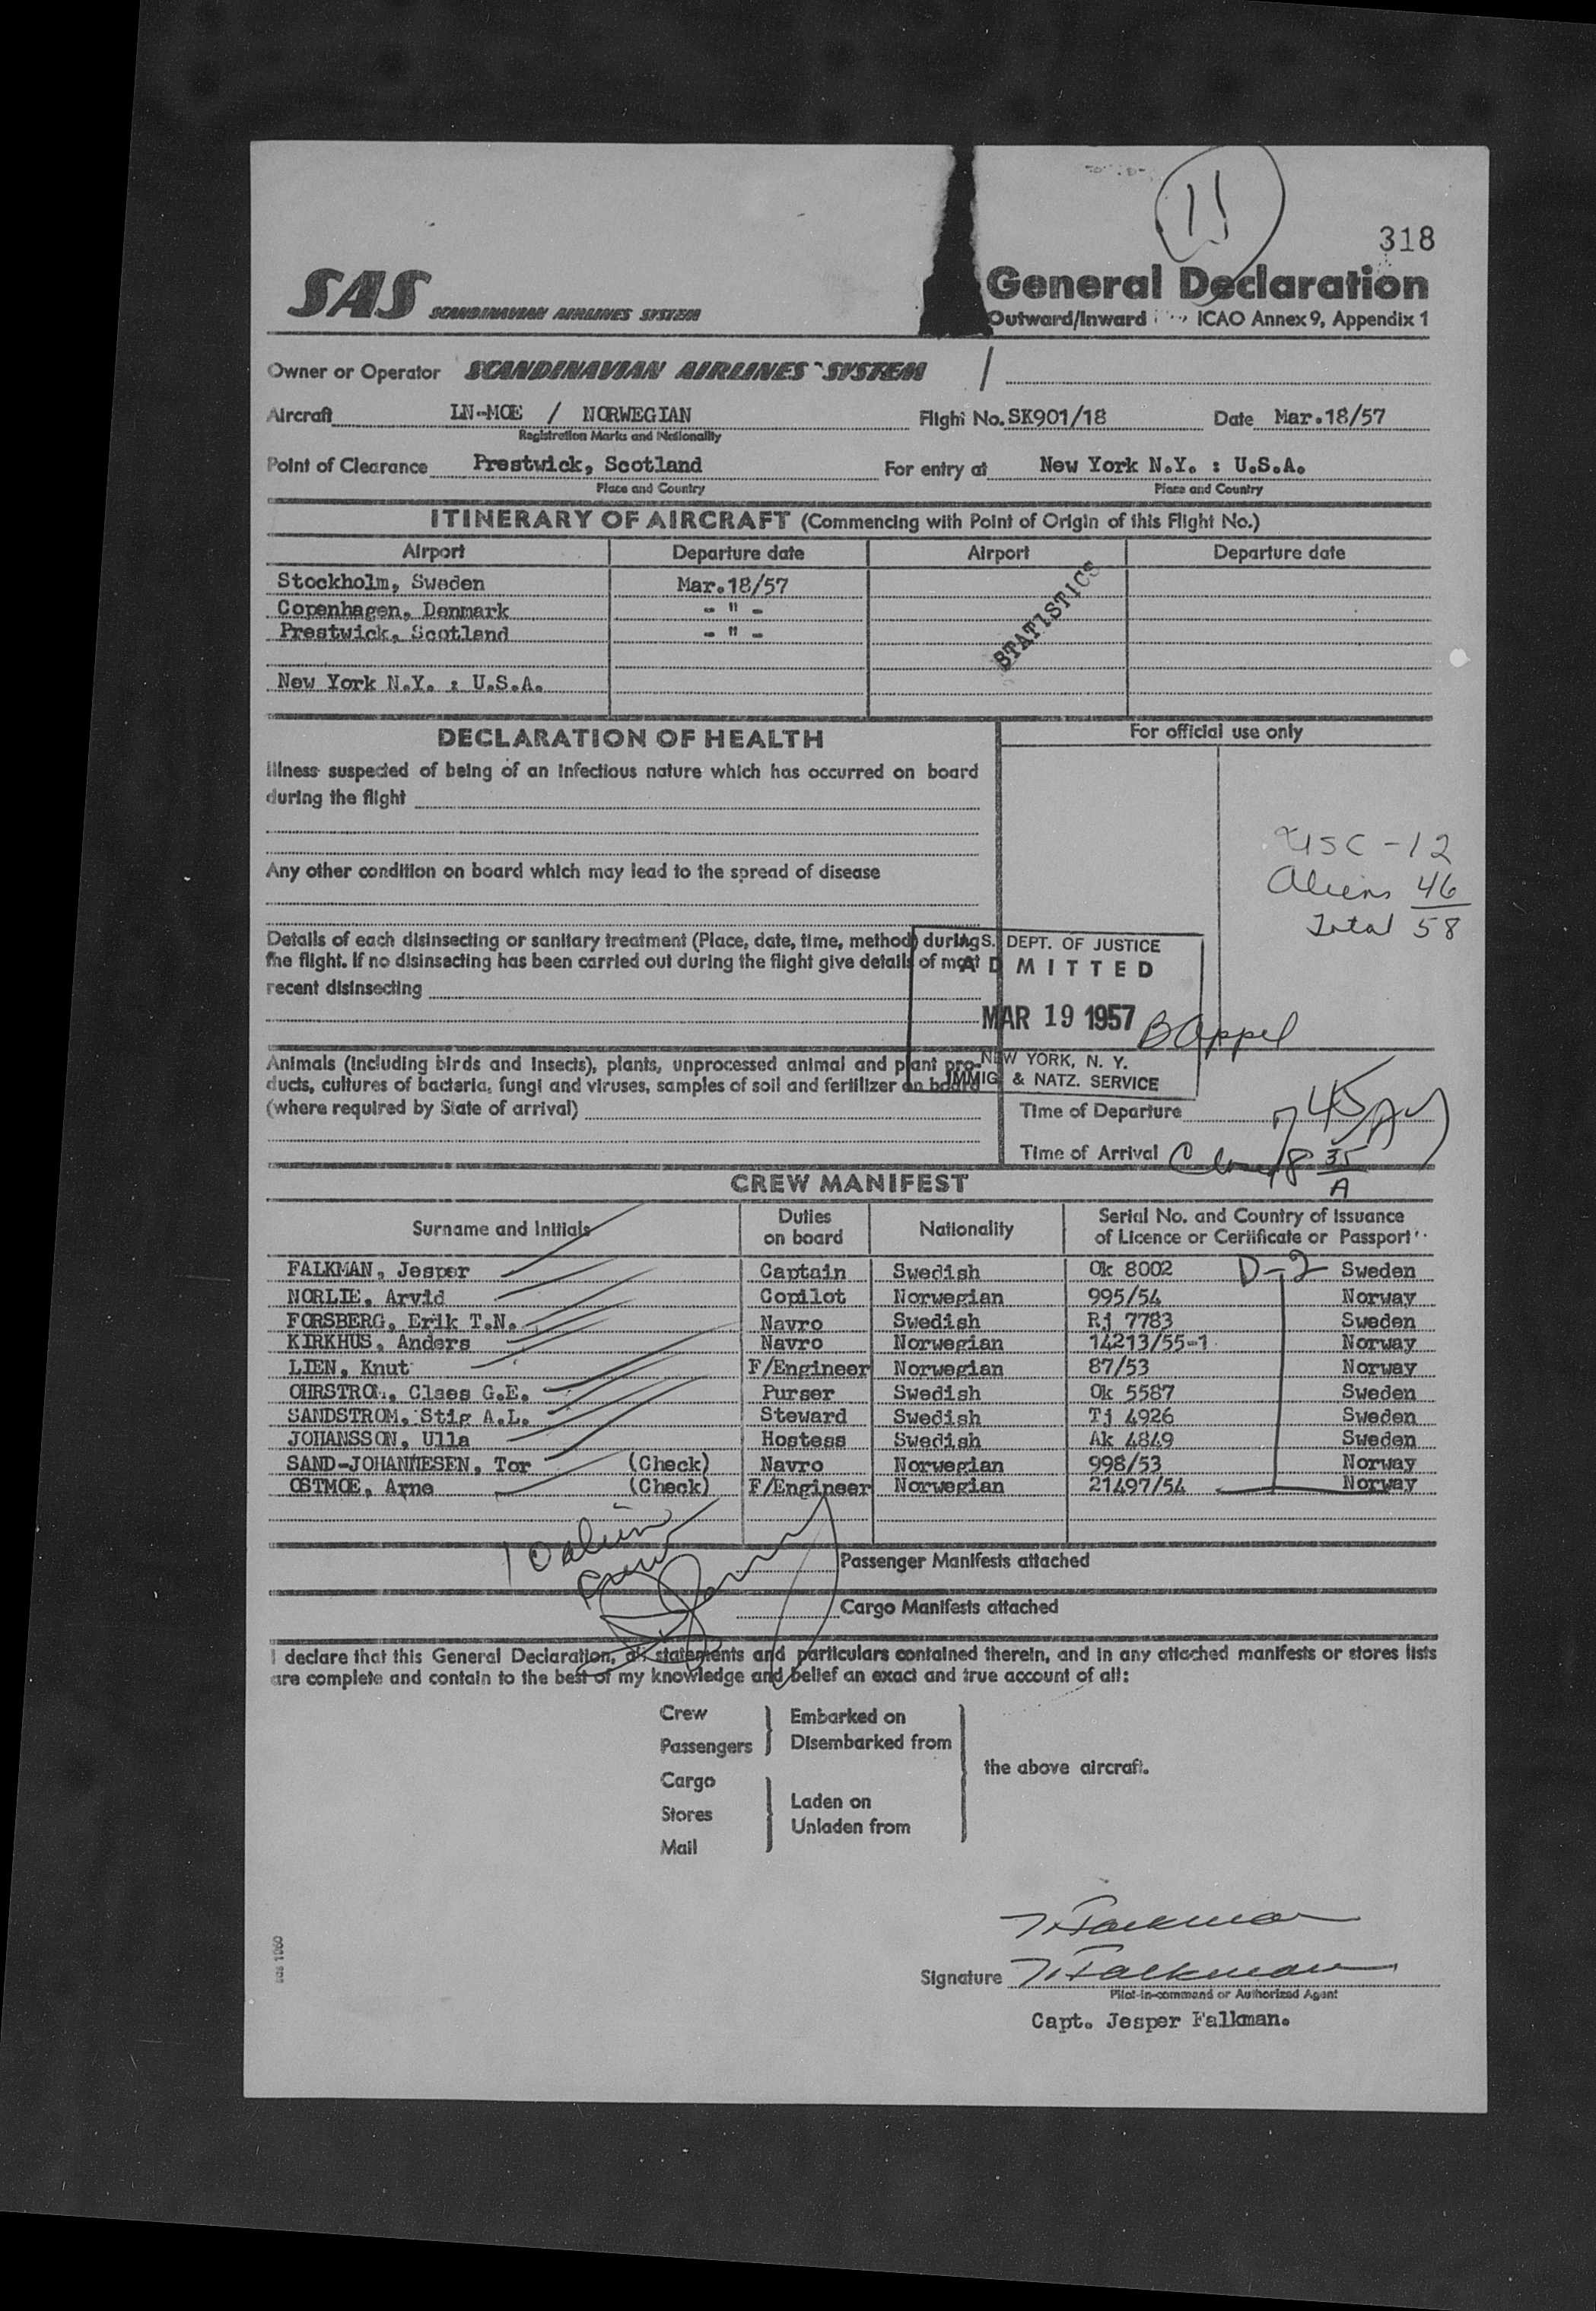 11
318
SAS SCANDINAVIAN AIRLINES SYSTEM
General Declaration
Outward/Inward ICAO Annex 9, Appendix 1
Owner or Operator SCANDINAVIAN AIRLINES SYSTEM /
Aircraft LN-MOE / NORWEGIAN Flight No. SK901/18 Date Mar.18/57
Registration Marks and Nationality
Point of Clearance Prestwick, Scotland For entry at New York N.Y. : U.S.A.
Place and Country Place and Country
ITINERARY OF AIRCRAFT (Commencing with Point of Origin of this Flight No.)
Airport Departure date Airport Departure date
Stockholm, Sweden Mar.18/57
Copenhagen, Denmark - " -
Prestwick, Scotland - " -
New York N.Y. : U.S.A.
STATISTICS
DECLARATION OF HEALTH
For official use only
Illness suspected of being of an infectious nature which has occurred on board
during the flight
Any other condition on board which may lead to the spread of disease
USC - 12
Aliens 46
Total 58
Details of each disinsecting or sanitary treatment (Place, date, time, method) during
the flight. If no disinsecting has been carried out during the flight give details of most
recent disinsecting
U.S. DEPT. OF JUSTICE
ADMITTED
MAR 19 1957
B Appel
NEW YORK, N. Y.
IMMIG. & NATZ. SERVICE
Animals (including birds and insects), plants, unprocessed animal and plant pro-
ducts, cultures of bacteria, fungi and viruses, samples of soil and fertilizer on board
(where required by State of arrival)
Time of Departure 7 45 A
Time of Arrival 8 35 A
CREW MANIFEST
Surname and Initials Duties on board Nationality Serial No. and Country of Issuance of Licence or Certificate or Passport
FALKMAN, Jesper Captain Swedish Ok 8002 D-2 Sweden
NORLIE, Arvid Copilot Norwegian 995/54 Norway
FORSBERG, Erik T.N. Navro Swedish Rj 7783 Sweden
KIRKHUS, Anders Navro Norwegian 14213/55-1 Norway
LIEN, Knut F/Engineer Norwegian 87/53 Norway
OHRSTROM, Claes G.E. Purser Swedish Ok 5587 Sweden
SANDSTROM, Stig A.L. Steward Swedish Tj 4926 Sweden
JOHANSSON, Ulla Hostess Swedish Ak 4849 Sweden
SAND-JOHANNESEN, Tor (Check) Navro Norwegian 998/53 Norway
OSTMOE, Arne (Check) F/Engineer Norwegian 21497/54 Norway
10 alien
crew
Passenger Manifests attached
Cargo Manifests attached
I declare that this General Declaration, all statements and particulars contained therein, and in any attached manifests or stores lists
are complete and contain to the best of my knowledge and belief an exact and true account of all:
Crew
Passengers
Embarked on
Disembarked from
Cargo
Stores
Mail
Laden on
Unladen from
the above aircraft.
J. Falkman
Signature J. Falkman
Pilot-in-command or Authorized Agent
Capt. Jesper Falkman.
sas 1060